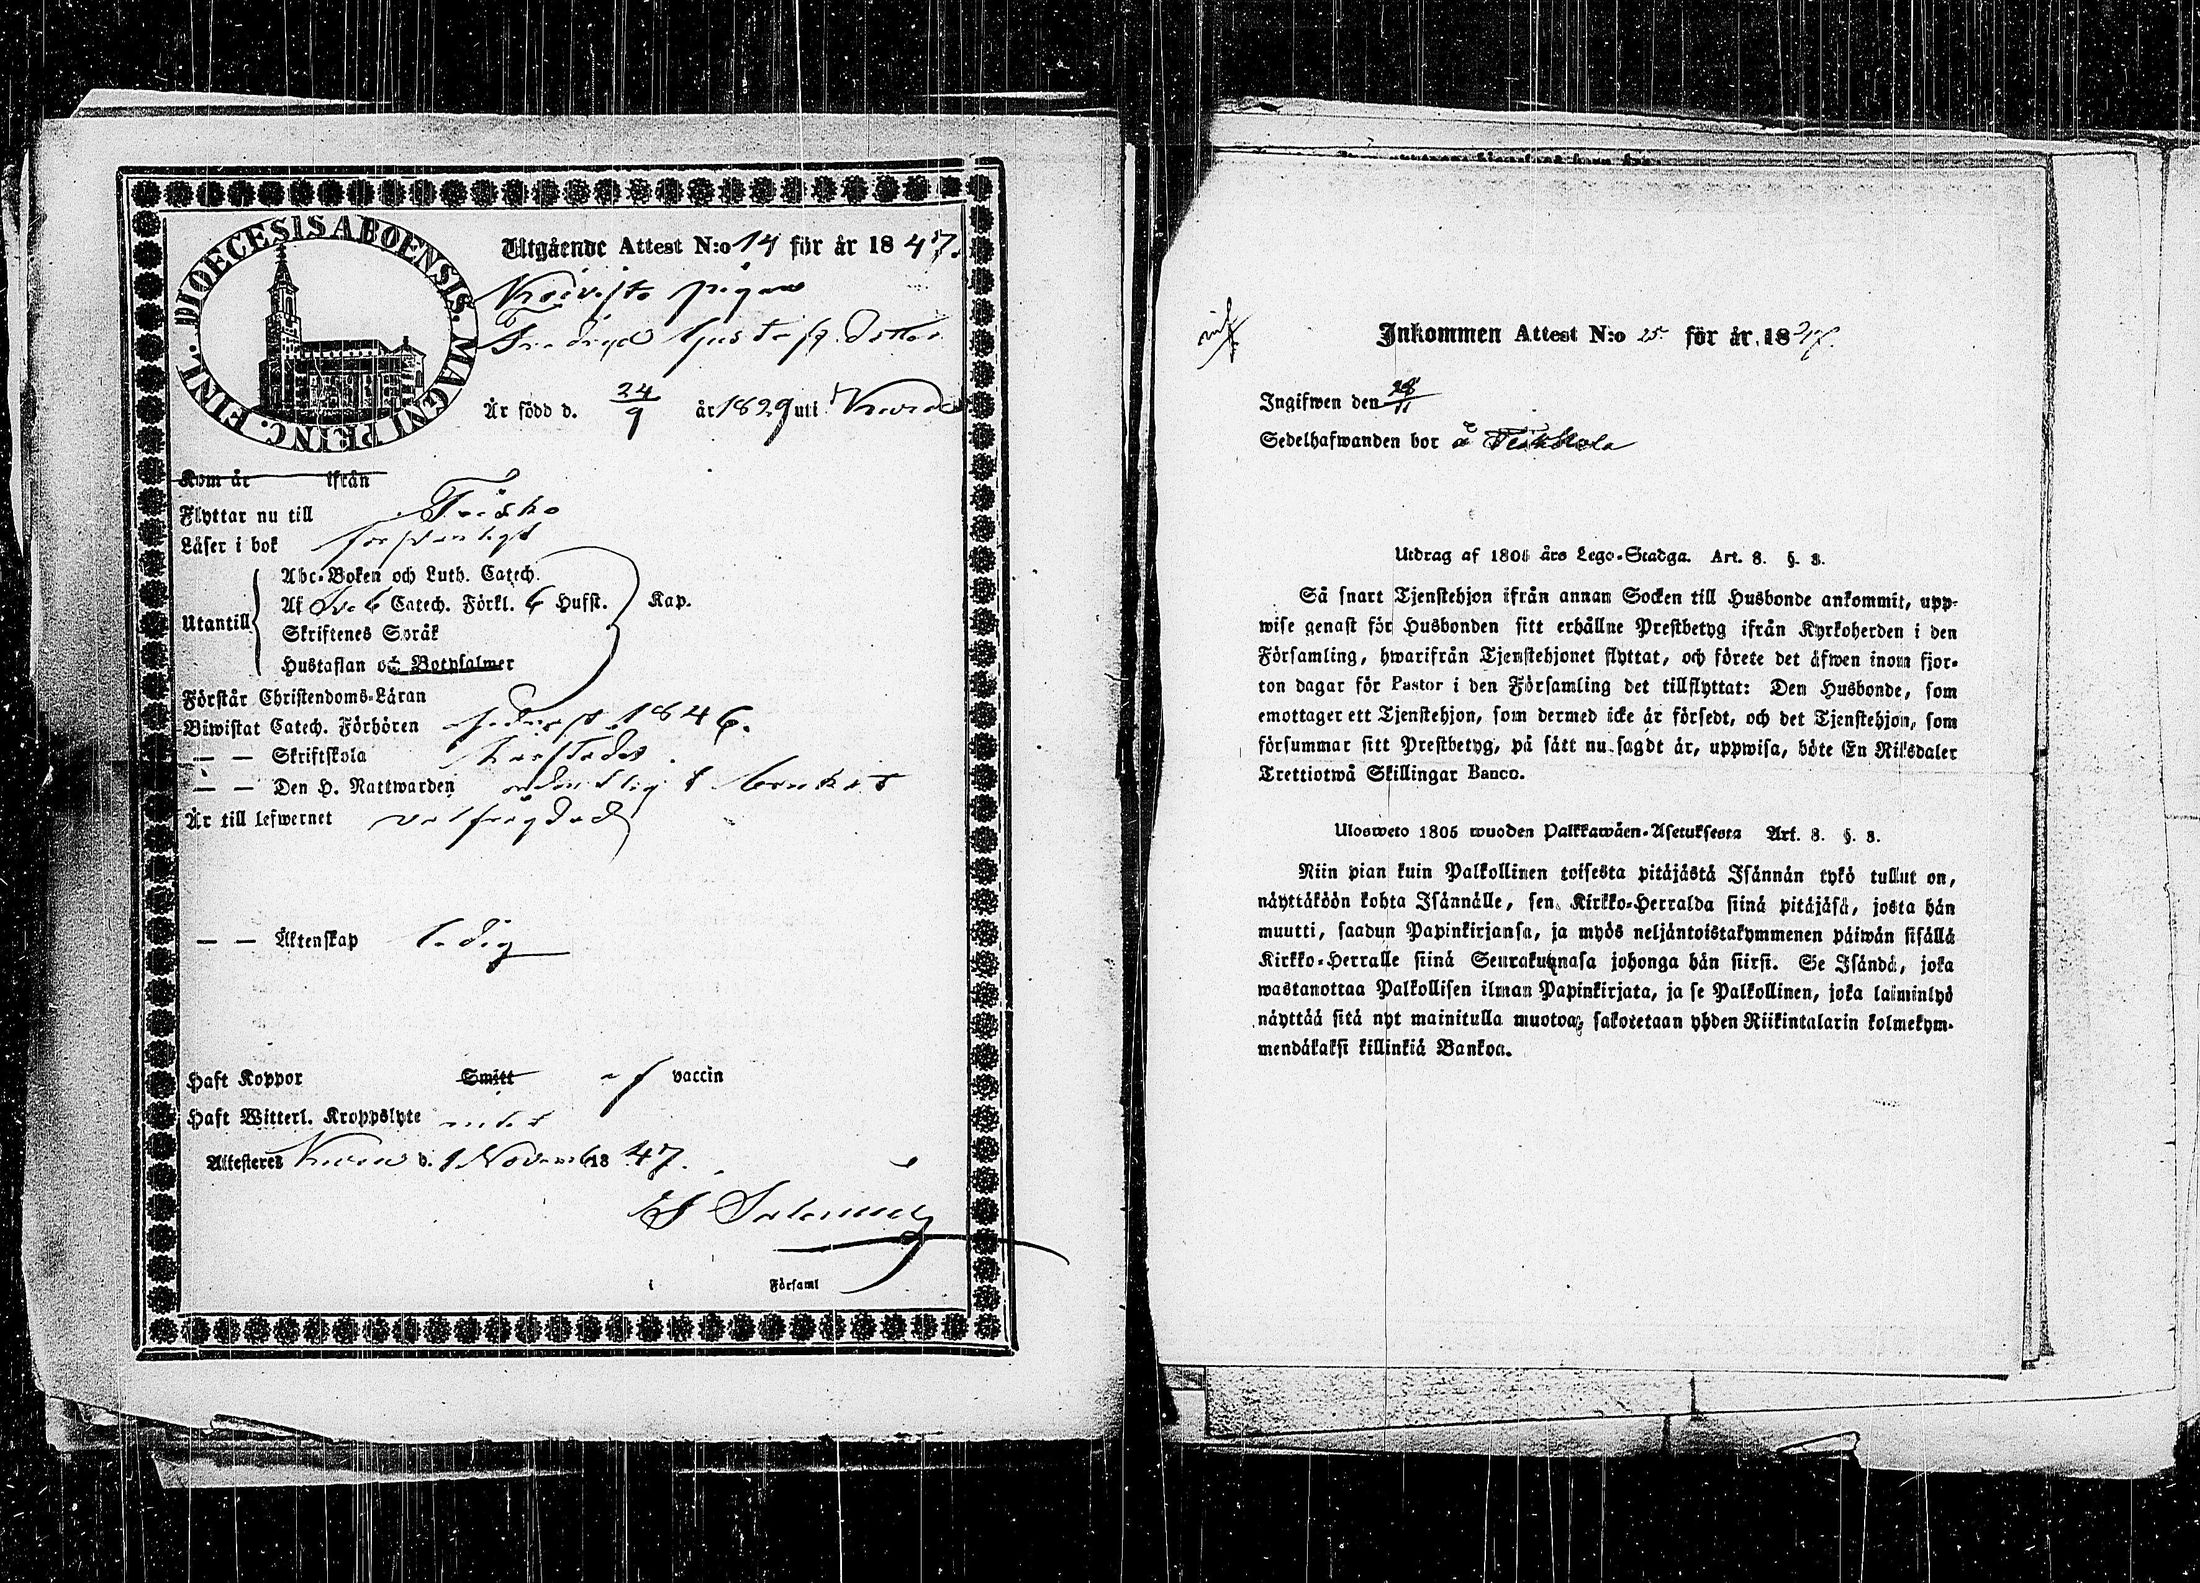 DIOECESIS ABOENSIS. MAGNI PRINC. FINL.
Utgående Attest N:o 14 för år 1847.
Koivisto pigan
Fredrica Gustafsdotter
Är född d. 24/9 år 1829 uti
Kom år ifrån
Flyttar nu till Töisko
Läser i bok försvarligt
Utantill
Abc-Boken och Luth. Catech.
Af Catech. Förkl. 6 Hufst. Kap.
Skriftenes Språk
Hustaflan och Botpsalmer
Förstår Christendoms-Läran
Biwistat Catech. Förhören sednast 1846.
— — Skriftskola
— — Den H. Nattwarden ordentligt brukat
Är till lefwernet välfrägdad
— — Äktenskap ledig
Haft Koppor Smitt af vaccin
Haft Witterl. Kroppslyte intet
Attesteras d. 1 Novemb 1847.
i Församl
Inkommen Attest N:o 25 för år 1847.
Ingifwen den 28/11
Sedelhafwanden bor å
Utdrag af 1805 års Lego-Stadga. Art. 8. §. 3.
Så snart Tjenstehjon ifrån annan Socken till Husbonde ankommit, upp-
wise genast för Husbonden sitt erhållne Prestbetyg ifrån Kyrkoherden i den
Församling, hwarifrån Tjenstehjonet flyttat, och förete det äfwen inom fjor-
ton dagar för Pastor i den Församling det tillflyttat: Den Husbonde, som
emottager ett Tjenstehjon, som dermed icke är försedt, och det Tjenstehjon, som
försummar sitt Prestbetyg, på sätt nu sagdt är, uppwisa, böte En Riksdaler
Trettiotwå Skillingar Banco.
Ulosweto 1805 wuoden Palkkawäen-Asetuksesta Art. 8. §. 3.
Niin pian kuin Palkollinen toisesta pitäjästä Isännän tykö tullut on,
näyttäköön kohta Isännälle, sen Kirkko-Herralda siinä pitäjäsä, josta hän
muutti, saadun Papinkirjansa, ja myös neljäntoistakymmenen päiwän sisällä
Kirkko-Herralle siinä Seurakunnasa johonga hän siirsi. Se Isändä, joka
wastanottaa Palkollisen ilman Papinkirjata, ja se Palkollinen, joka laiminlyö
näyttää sitä nyt mainitulla muotoa, sakotetaan yhden Riikintalarin kolmekym-
mendäkaksi killinkiä Bankoa.